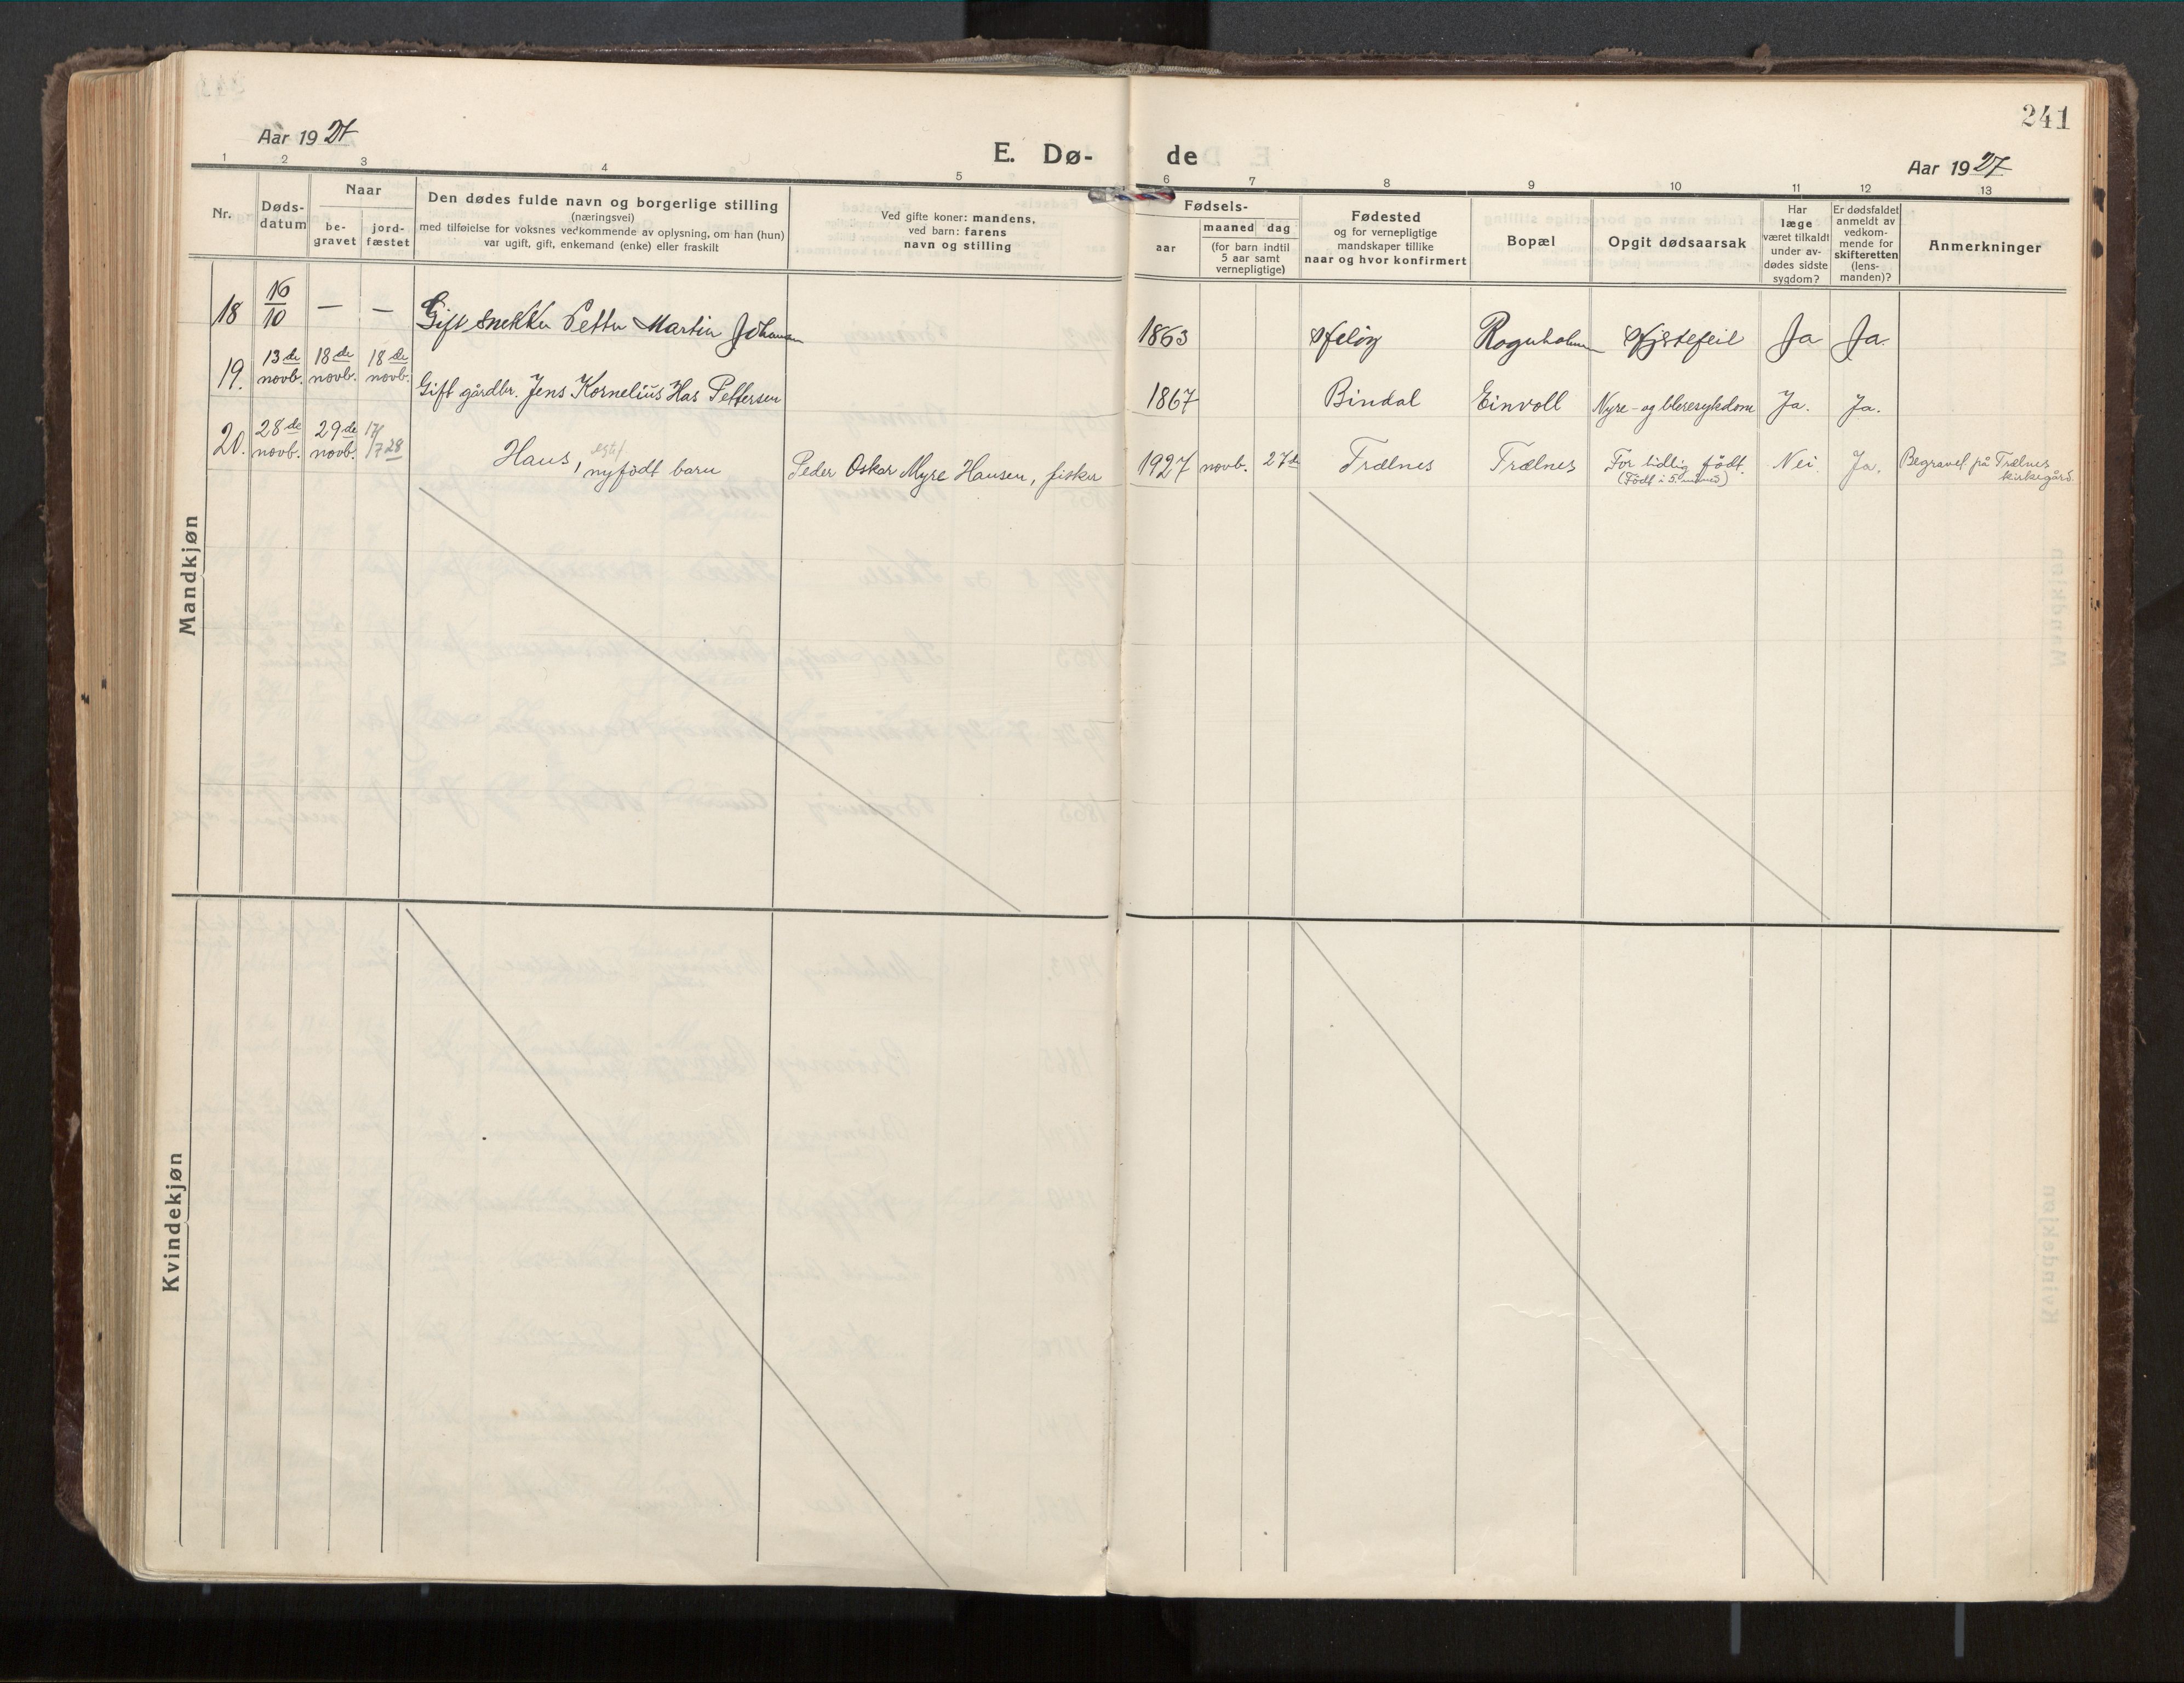 241
Aar 1927
E. Dø-
de
Aar 1927
1 2 3 4 5 6 7 8 9 10 11 12 13
Nr.
Døds-
datum
Naar
be-
gravet
jord-
fæstet
Den dødes fulde navn og borgerlige stilling
(næringsvei)
med tilføielse for voksnes vedkommende av oplysning, om han (hun)
var ugift, gift, enkemand (enke) eller fraskilt
Ved gifte koner: mandens,
ved barn: farens
navn og stilling
Fødsels-
aar
maaned dag
(for barn indtil
5 aar samt
vernepligtige)
Fødested
og for vernepligtige
mandskaper tillike
naar og hvor konfirmert
Bopæl
Opgit dødsaarsak
Har
læge
været tilkaldt
under av-
dødes sidste
sygdom?
Er dødsfaldet
anmeldt av
vedkom-
mende for
skifteretten
(lens-
manden)?
Anmerkninger
Mandkjøn
18 16/10 — — Gift snekker Petter Martin Johansen 1863 Hjertefeil Ja Ja.
19. 13de novb. 18de novb. 18de novb. Gift gårdbr. Jens Kornelius Has Pettersen 1867 Bindal Einvoll Nyre- og bleresykdom Ja. Ja.
20. 28de novb. 29de novb. 17/7 28 Hans, nyfødt barn Peder Oskar Myre Hansen, fisker 1927 novb. 27de Trælnes Trælnes For tidlig født. Nei. Ja. Begravet på Trælnes
(Født i 5. måned) kirkegård.
Kvindekjøn